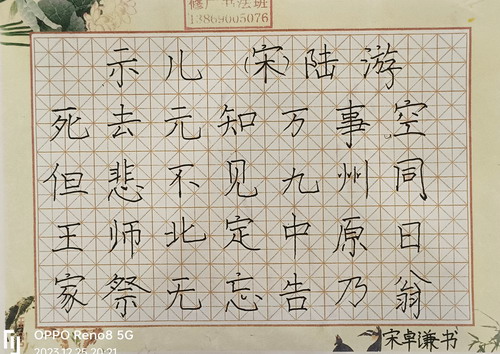 13869005076
示儿 (宋) 陆游
死去元知万事空
但悲不见九州同
王师北定中原日
家祭无忘告乃翁
宋卓谦书
OPPO Reno8 5G
2023.12.25 20:21